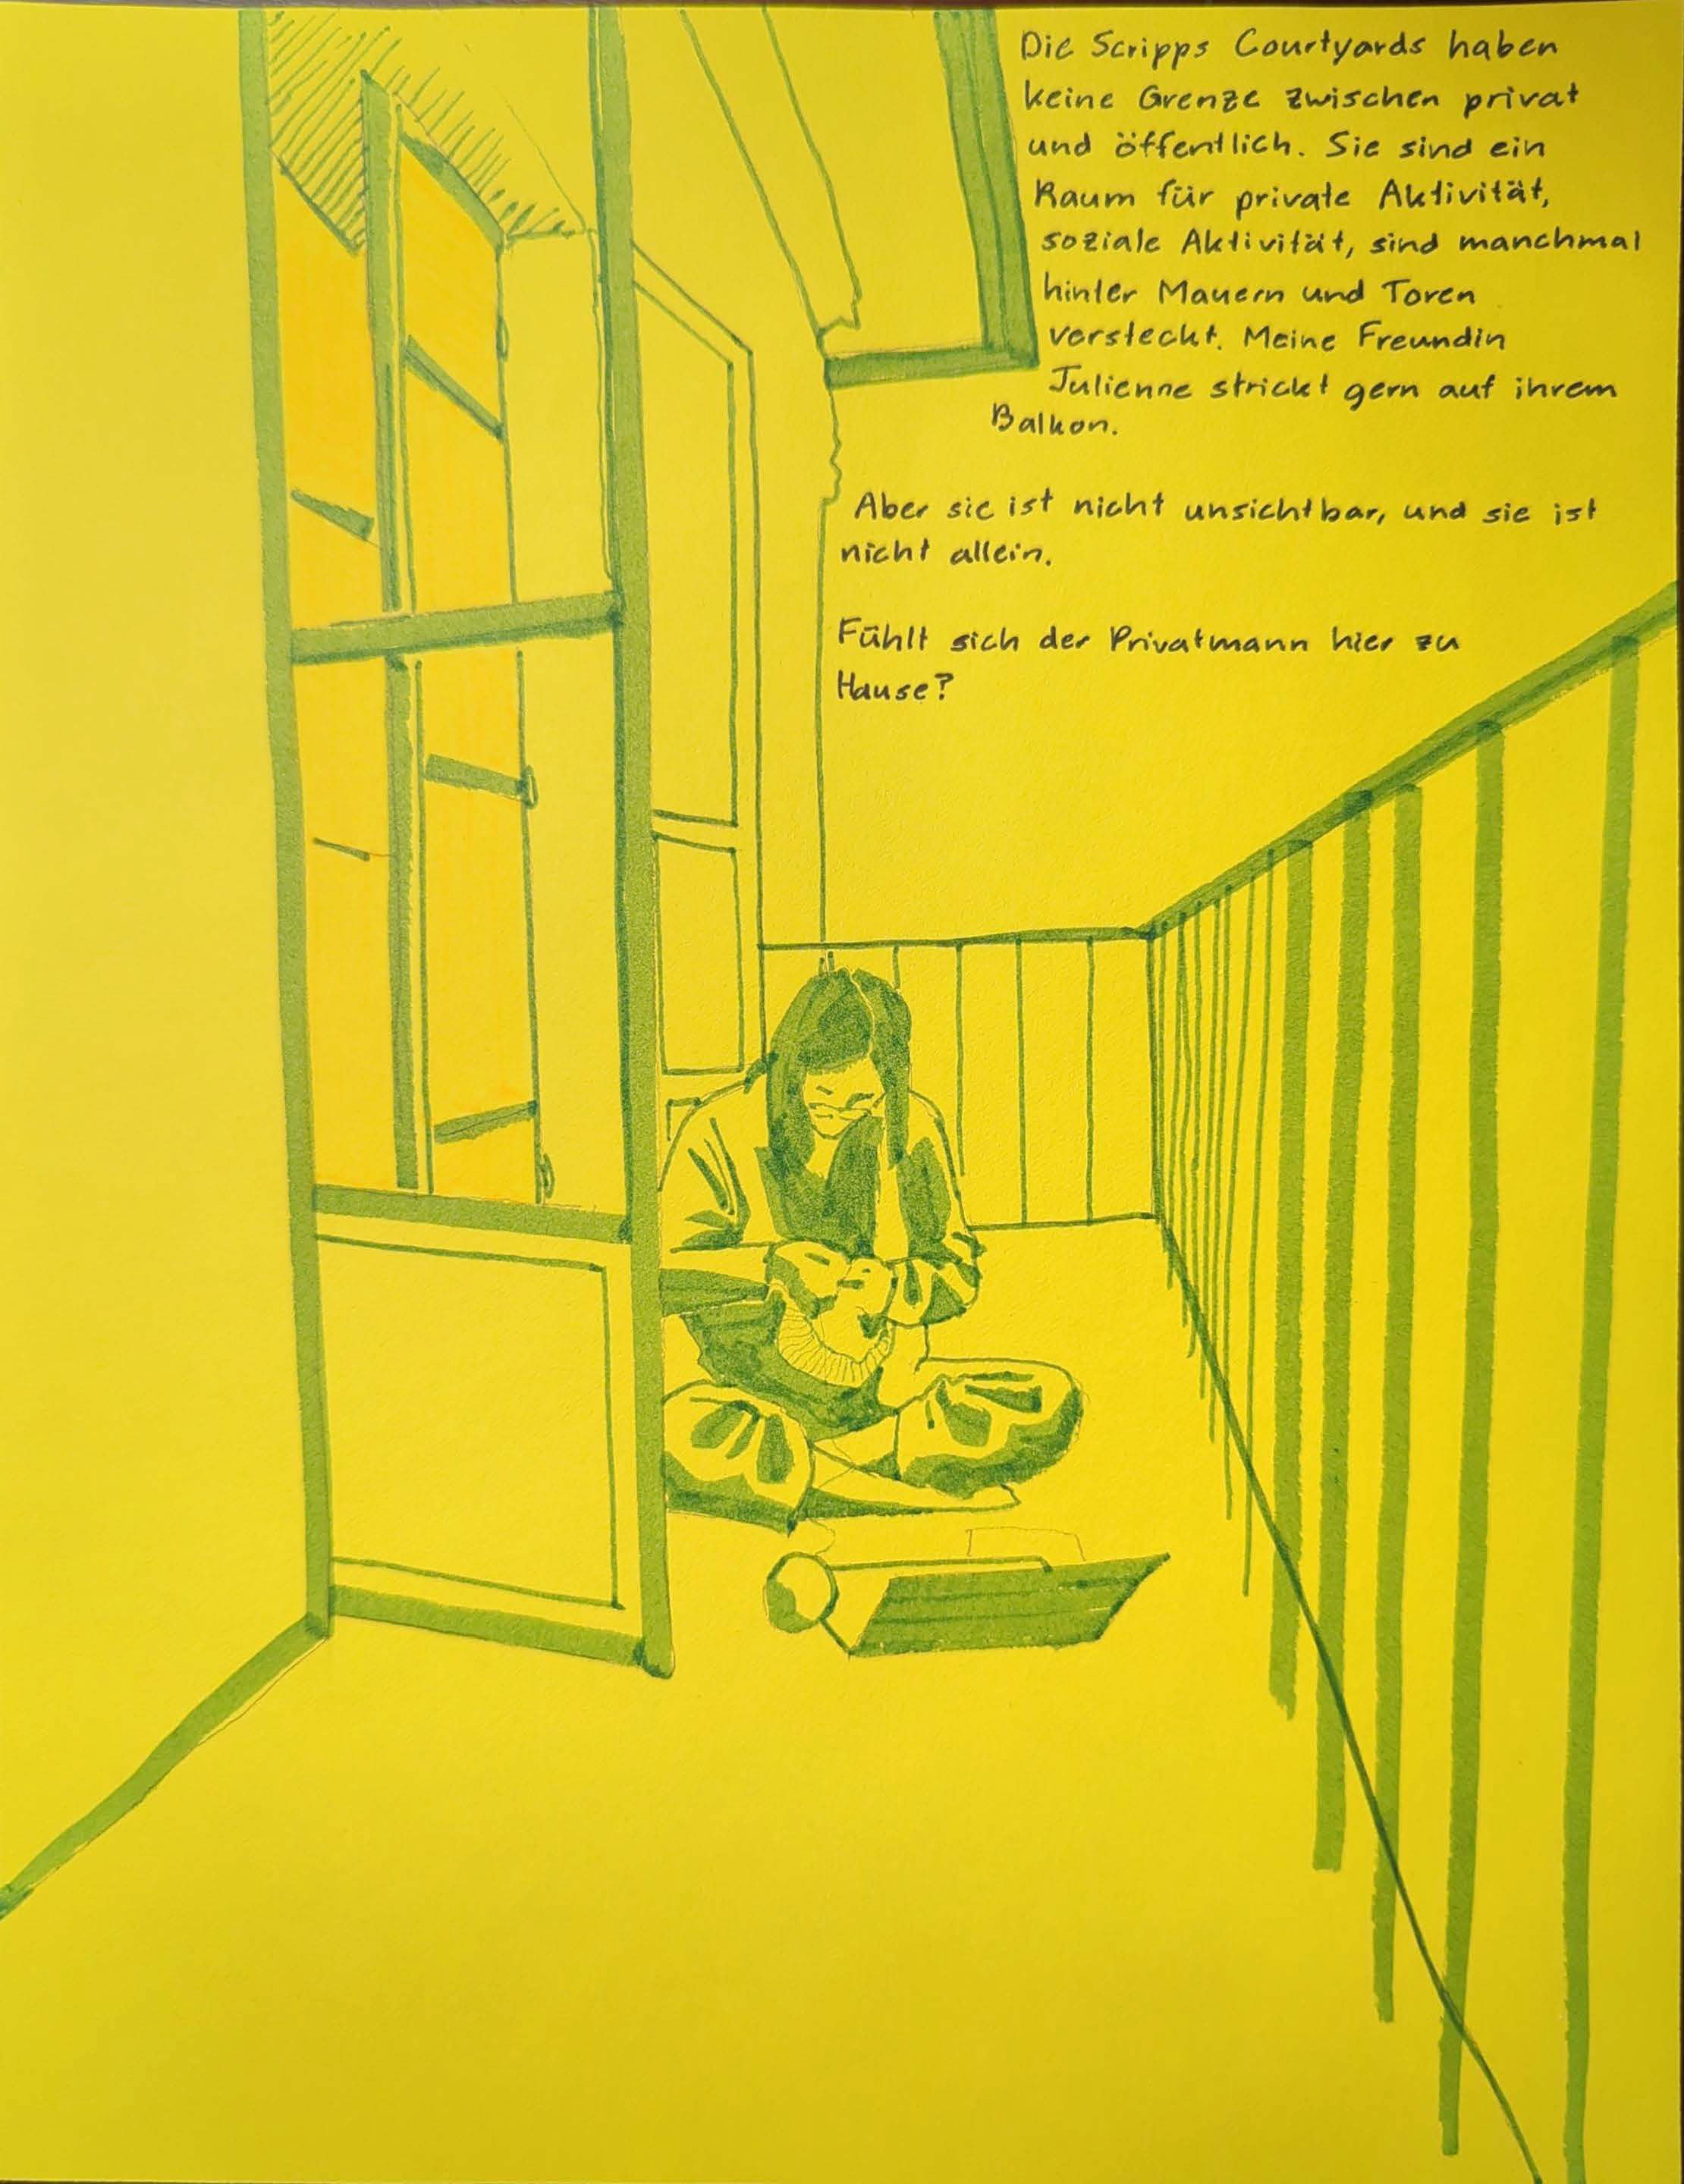 Die Scripps Courtyards haben
keine Grenze zwischen privat
und öffentlich. Sie sind ein
Raum für private Aktivität,
soziale Aktivität, sind manchmal
hinter Mauern und Toren
versteckt. Meine Freundin
Julienne strickt gern auf ihrem
Balkon.
Aber sie ist nicht unsichtbar, und sie ist
nicht allein.
Fühlt sich der Privatmann hier zu
Hause?